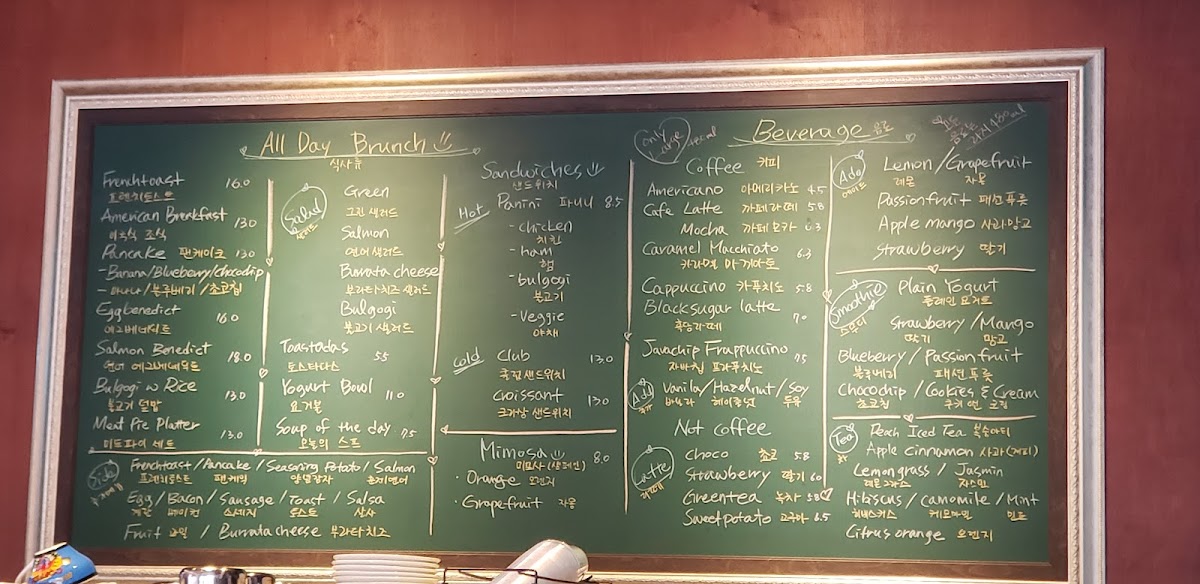 All Day Brunch
식사류
Frenchtoast 16.0
프렌치토스트
American Breakfast 13.0
미국식 조식
Pancake 팬케이크 13.0
- Banana/Blueberry/chocochip
- 바나나/블루베리/초코칩
Eggbenedict 16.0
에그베네딕트
Salmon Benedict 18.0
연어 에그베네딕트
Bulgogi w Rice 13.0
불고기 덮밥
Meat Pie Platter 13.0
미트파이 세트
Salad
샐러드
Green
그린 샐러드
Salmon
연어 샐러드
Burrata cheese
부라타치즈 샐러드
Bulgogi
불고기 샐러드
Toastadas 5.5
토스타다스
Yogurt Bowl 11.0
요거볼
Soup of the day 7.5
오늘의 스프
Side
Frenchtoast / Pancake / Seasoning Potato / Salmon
프렌치토스트 팬케익 양념감자 훈제연어
Egg / Bacon / Sausage / Toast / Salsa
계란 베이컨 소세지 토스트 살사
Fruit 과일 / Burrata cheese 부라타치즈
Sandwiches
샌드위치
Hot
Panini 파니니 8.5
- chicken
치킨
- ham
햄
- bulgogi
불고기
- Veggie
야채
Cold
Club 13.0
클럽샌드위치
croissant 13.0
크라상 샌드위치
Mimosa 8.0
미모사 (샴페인)
· Orange 오렌지
· Grapefruit 자몽
Only Large
Beverage 음료
Coffee 커피
Americano 아메리카노 4.5
Cafe Latte 까페라떼 5.8
Mocha 까페모카 6.3
Caramel Macchiato 6.3
카라멜 마끼아또
Cappuccino 카푸치노 5.8
Blacksugar latte 7.0
흑당라떼
Javachip Frappuccino 7.5
자바칩 프라푸치노
Add
추가
Vanila / Hazelnut / Soy
바닐라 헤이즐넛 두유
Not coffee
Latte
라떼
choco 초코 5.8
Strawberry 딸기 6.0
Greentea 녹차 5.8
Sweetpotato 고구마 6.5
Ade
에이드
Lemon / Grapefruit
레몬 자몽
Passionfruit 패션푸룻
Apple mango 사과망고
Strawberry 딸기
Smoothie
스무디
Plain Yogurt
플레인 요거트
Strawberry / Mango
딸기 망고
Blueberry / Passionfruit
블루베리 패션푸룻
Chocochip / Cookies & Cream
초코칩 쿠키 앤 크림
Tea
차
Peach Iced Tea 복숭아티
Apple cinnamon 사과(계피)
Lemongrass / Jasmin
레몬그라스 자스민
Hibiscus / camomile / Mint
히비스커스 캐모마일 민트
Citrus orange 오렌지